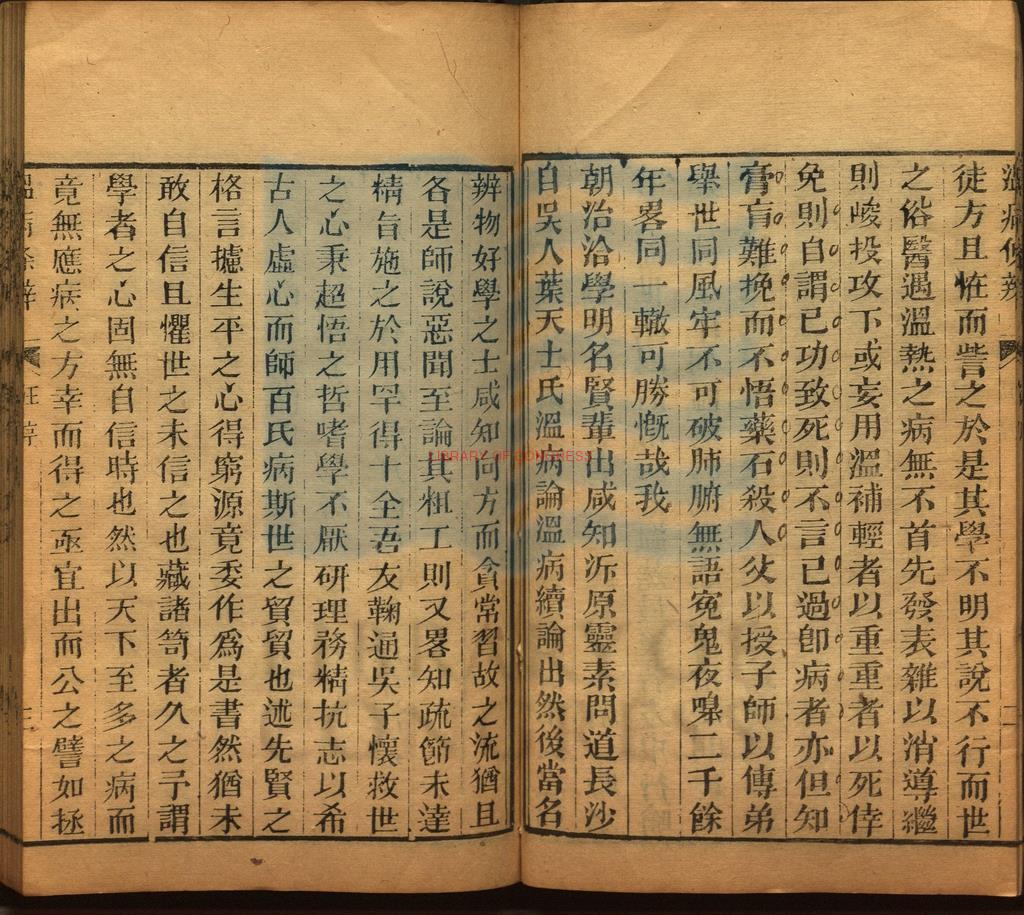 溫病條辨
徒方且恠而訾之於是其學不明其說不行而世
之俗醫遇溫熱之病無不首先發表雜以消導繼
則峻投攻下或妄用溫補輕者以重重者以死倖
免則自謂已功致死則不言已過卽病者亦但知
膏肓難挽而不悟藥石殺人父以授子師以傳弟
舉世同風牢不可破肺腑無語冤鬼夜嘷二千餘
年畧同一轍可勝慨哉我
朝治洽學明名賢輩出咸知泝原靈素問道長沙
自吳人葉天士氏溫病論溫病續論出然後當名
辨物好學之士咸知向方而貪常習故之流猶且
各是師說惡聞至論其粗工則又畧知疏節未達
精旨施之於用罕得十全吾友鞠通吳子懷救世
之心秉超悟之哲嗜學不厭研理務精抗志以希
古人虛心而師百氏病斯世之貿貿也述先賢之
格言攄生平之心得窮源竟委作爲是書然猶未
敢自信且懼世之未信之也藏諸笥者久之予謂
學者之心固無自信時也然以天下至多之病而
竟無應病之方幸而得之亟宜出而公之譬如拯
溫病條辨
LIBRARY OF CONGRESS